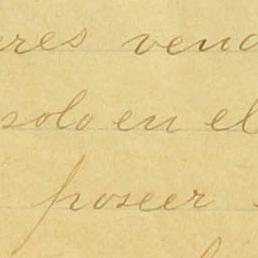 eres vend
solo en el
poseer